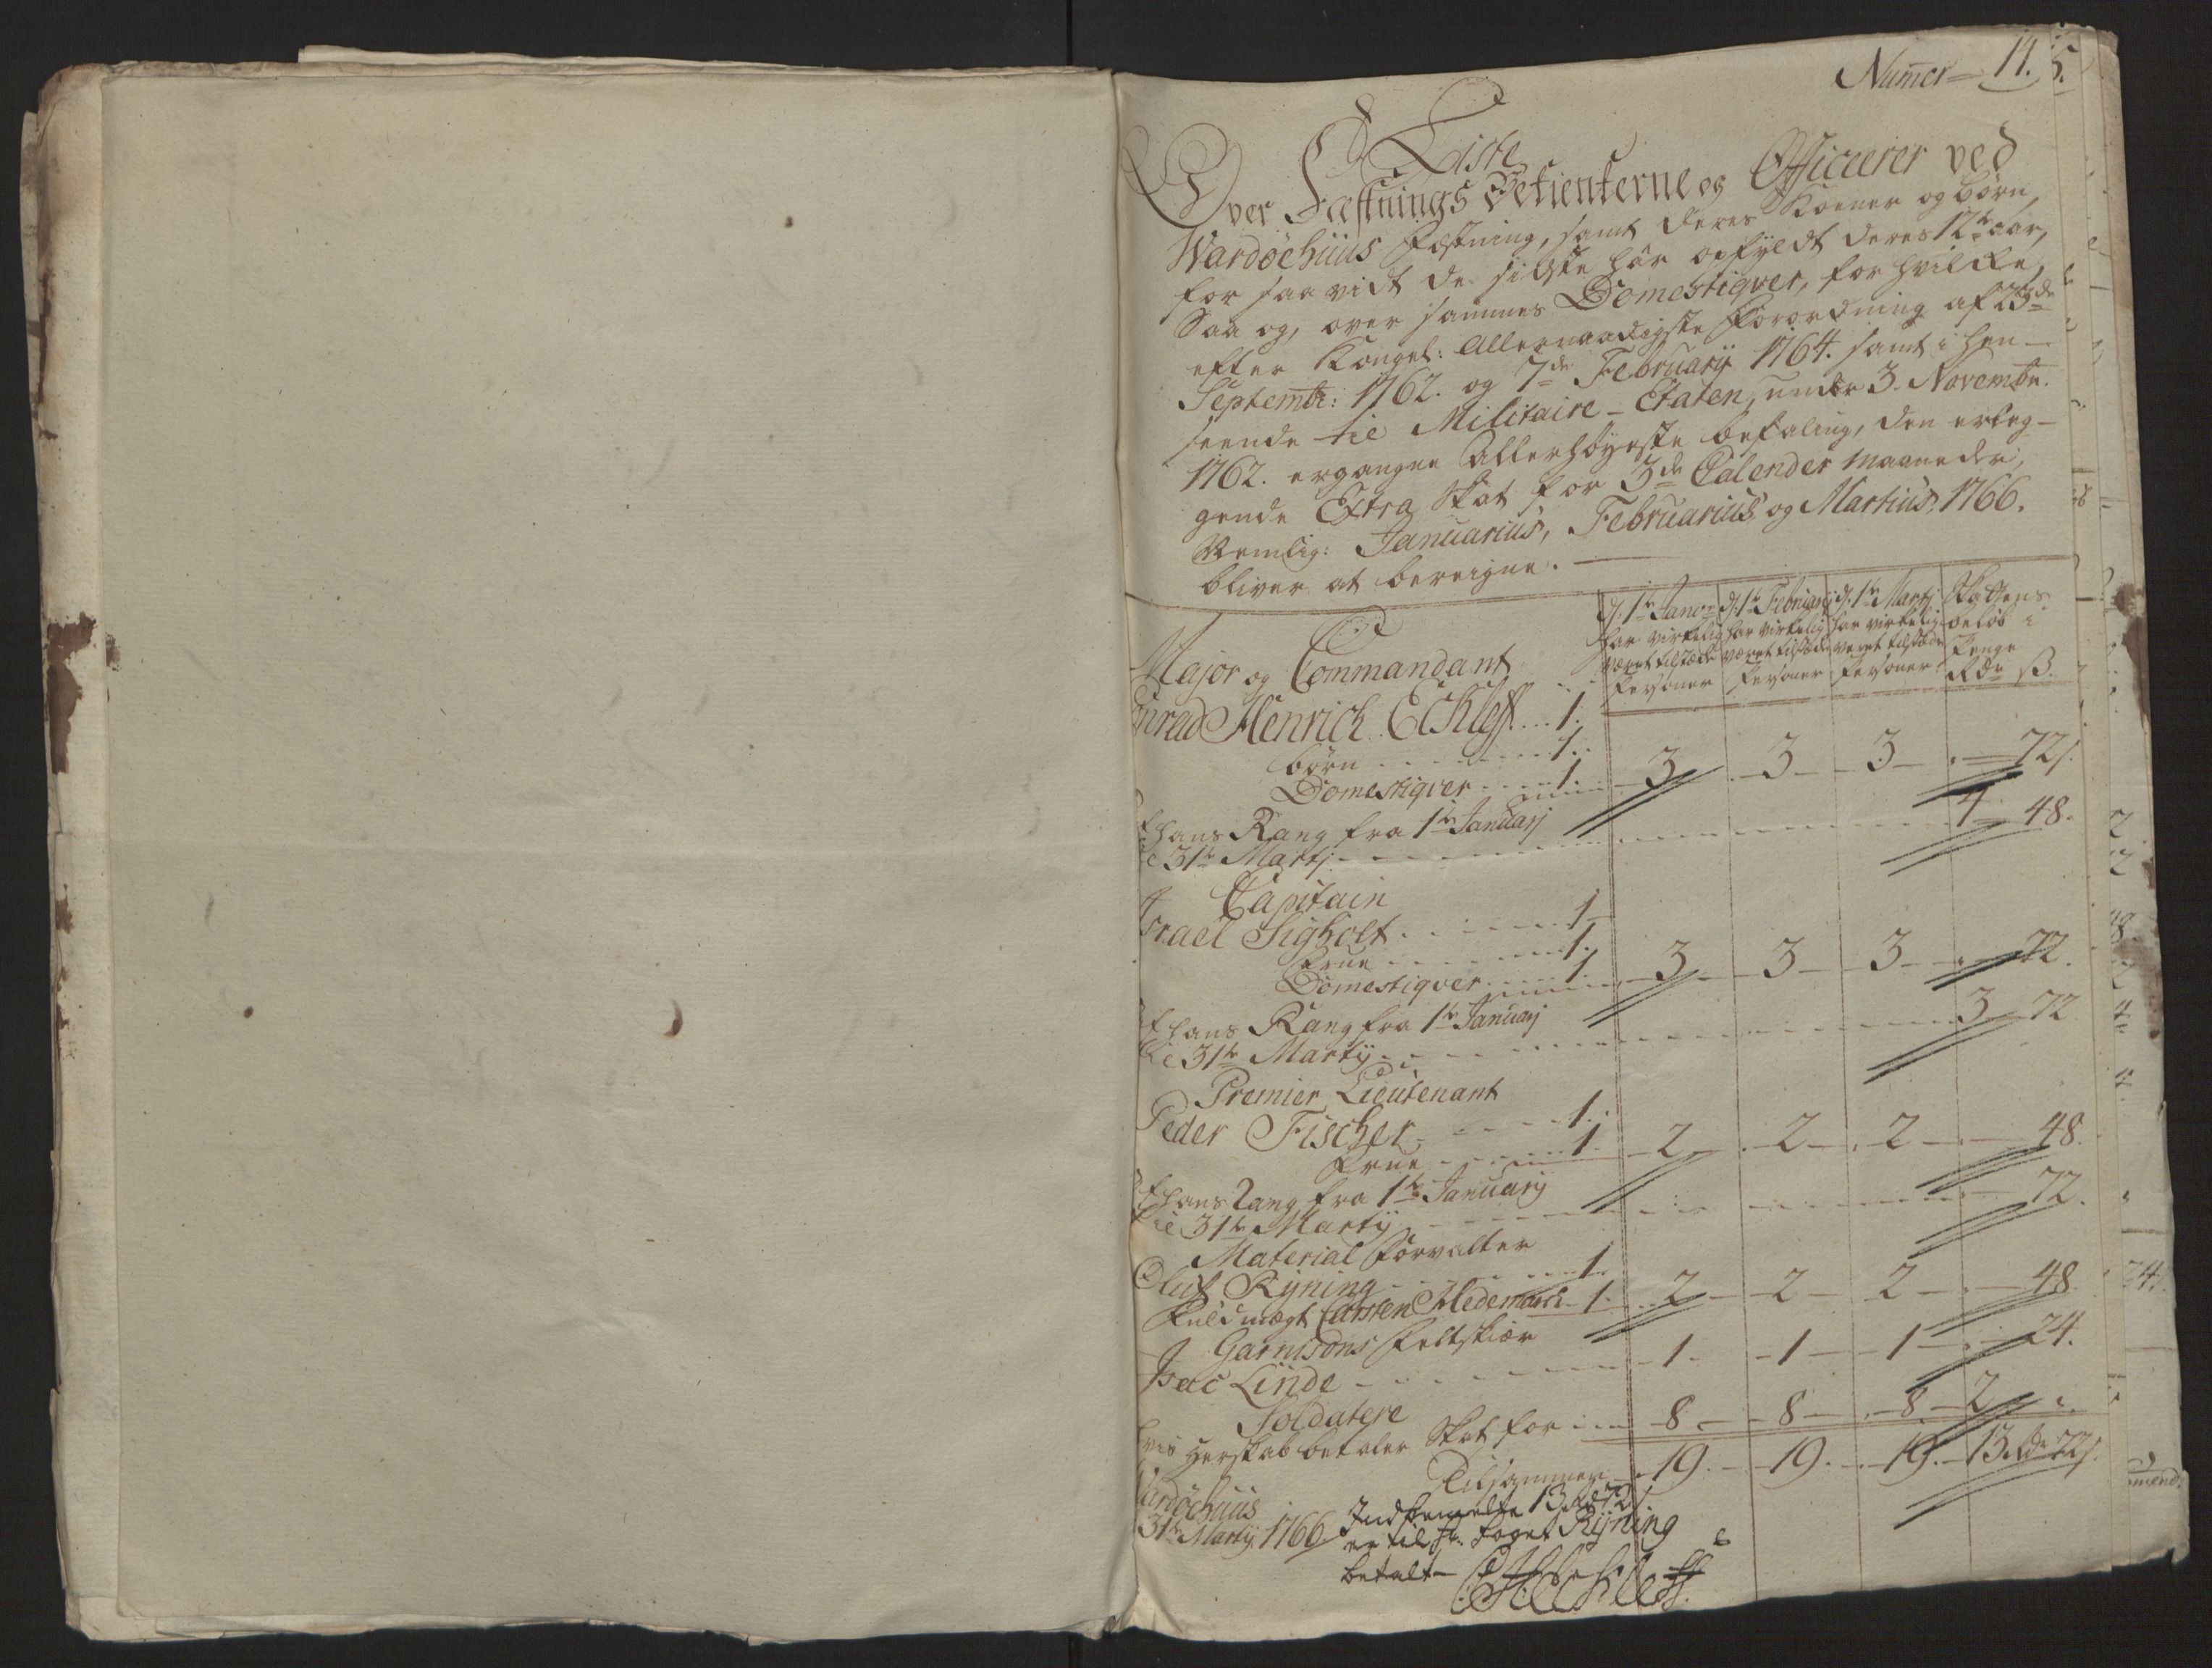 Num̄er 11.
Liste
Over Fæstnings Betienterne og Officcerer ved
Wardøehuus Fæstning, samt deres Koener og børn,
for saa vidt de sidste har opfyldt deres 12te aar,
Saa og, over sammes Domestiqver, for hvilke,
efter Kongel: Allernaadigste Forordning af 23de
Septembr: 1762. og 7de Februarij 1764. samt i hen-
seende til Militaire-Etaten, under 3. Novembr.
1762. ergangne Allerhøyeste befaling, den erleg-
gende Extra Skat for 3de Calender Maaneder,
Nemlig: Januarius, Februarius og Martius 1766.
bliver at bereigne.
d. 1te Janvr har virkelig været tilstæde Personer
d. 1te Februarij har virkelig været tilstæde Personer
d. 1te Martj har virkelig været tilstæde Personer
Skattens beløb i Penge Rdr ß.
Major og Commandant
Henrich Eckleff 1.
børn 1.
Domestiqver 1. 3 3 3 72
hans Rang fra 1te Januarj
31te Martj 4 48.
Capitain
Israel Sigholt 1
Frue 1.
Domestiqver 1 3 3 3 72.
hans Rang fra 1te Januarj
til 31te Martij 3 72
Premier Lieutenant
Peder Fischer 1.
Frue 1. 2 2 2 48.
hans Rang fra 1te Januarij
til 31te Martij 72.
Material Forvalter
Oluf Rijning 1.
Fuldmægt Carsten Hedemarck 1. 2 2 2 48.
Garnisons Feltskiær
Isac Linde 1 1 1 24.
Soldatere
hvis Herskab betaler Skat for 8 8 8 2
Tilsammen 19. 19. 19. 13 Rdr 72ß.
Wardøehuus
31te Martij 1766
Indbemelte 13 Rd 72ß
er til Hr. Foget Rijning
betalt
CHEckleff